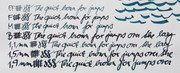 EF The quick brown fox jumps
F The quick brown fox jumps
M The quick brown fox jumps o
B The quick brown fox jumps over the lazy
1,1 mm The quick brown fox jumps over
1,5 mm The quick brown fox jumps over
1,9 mm The quick brown fox jumps ove